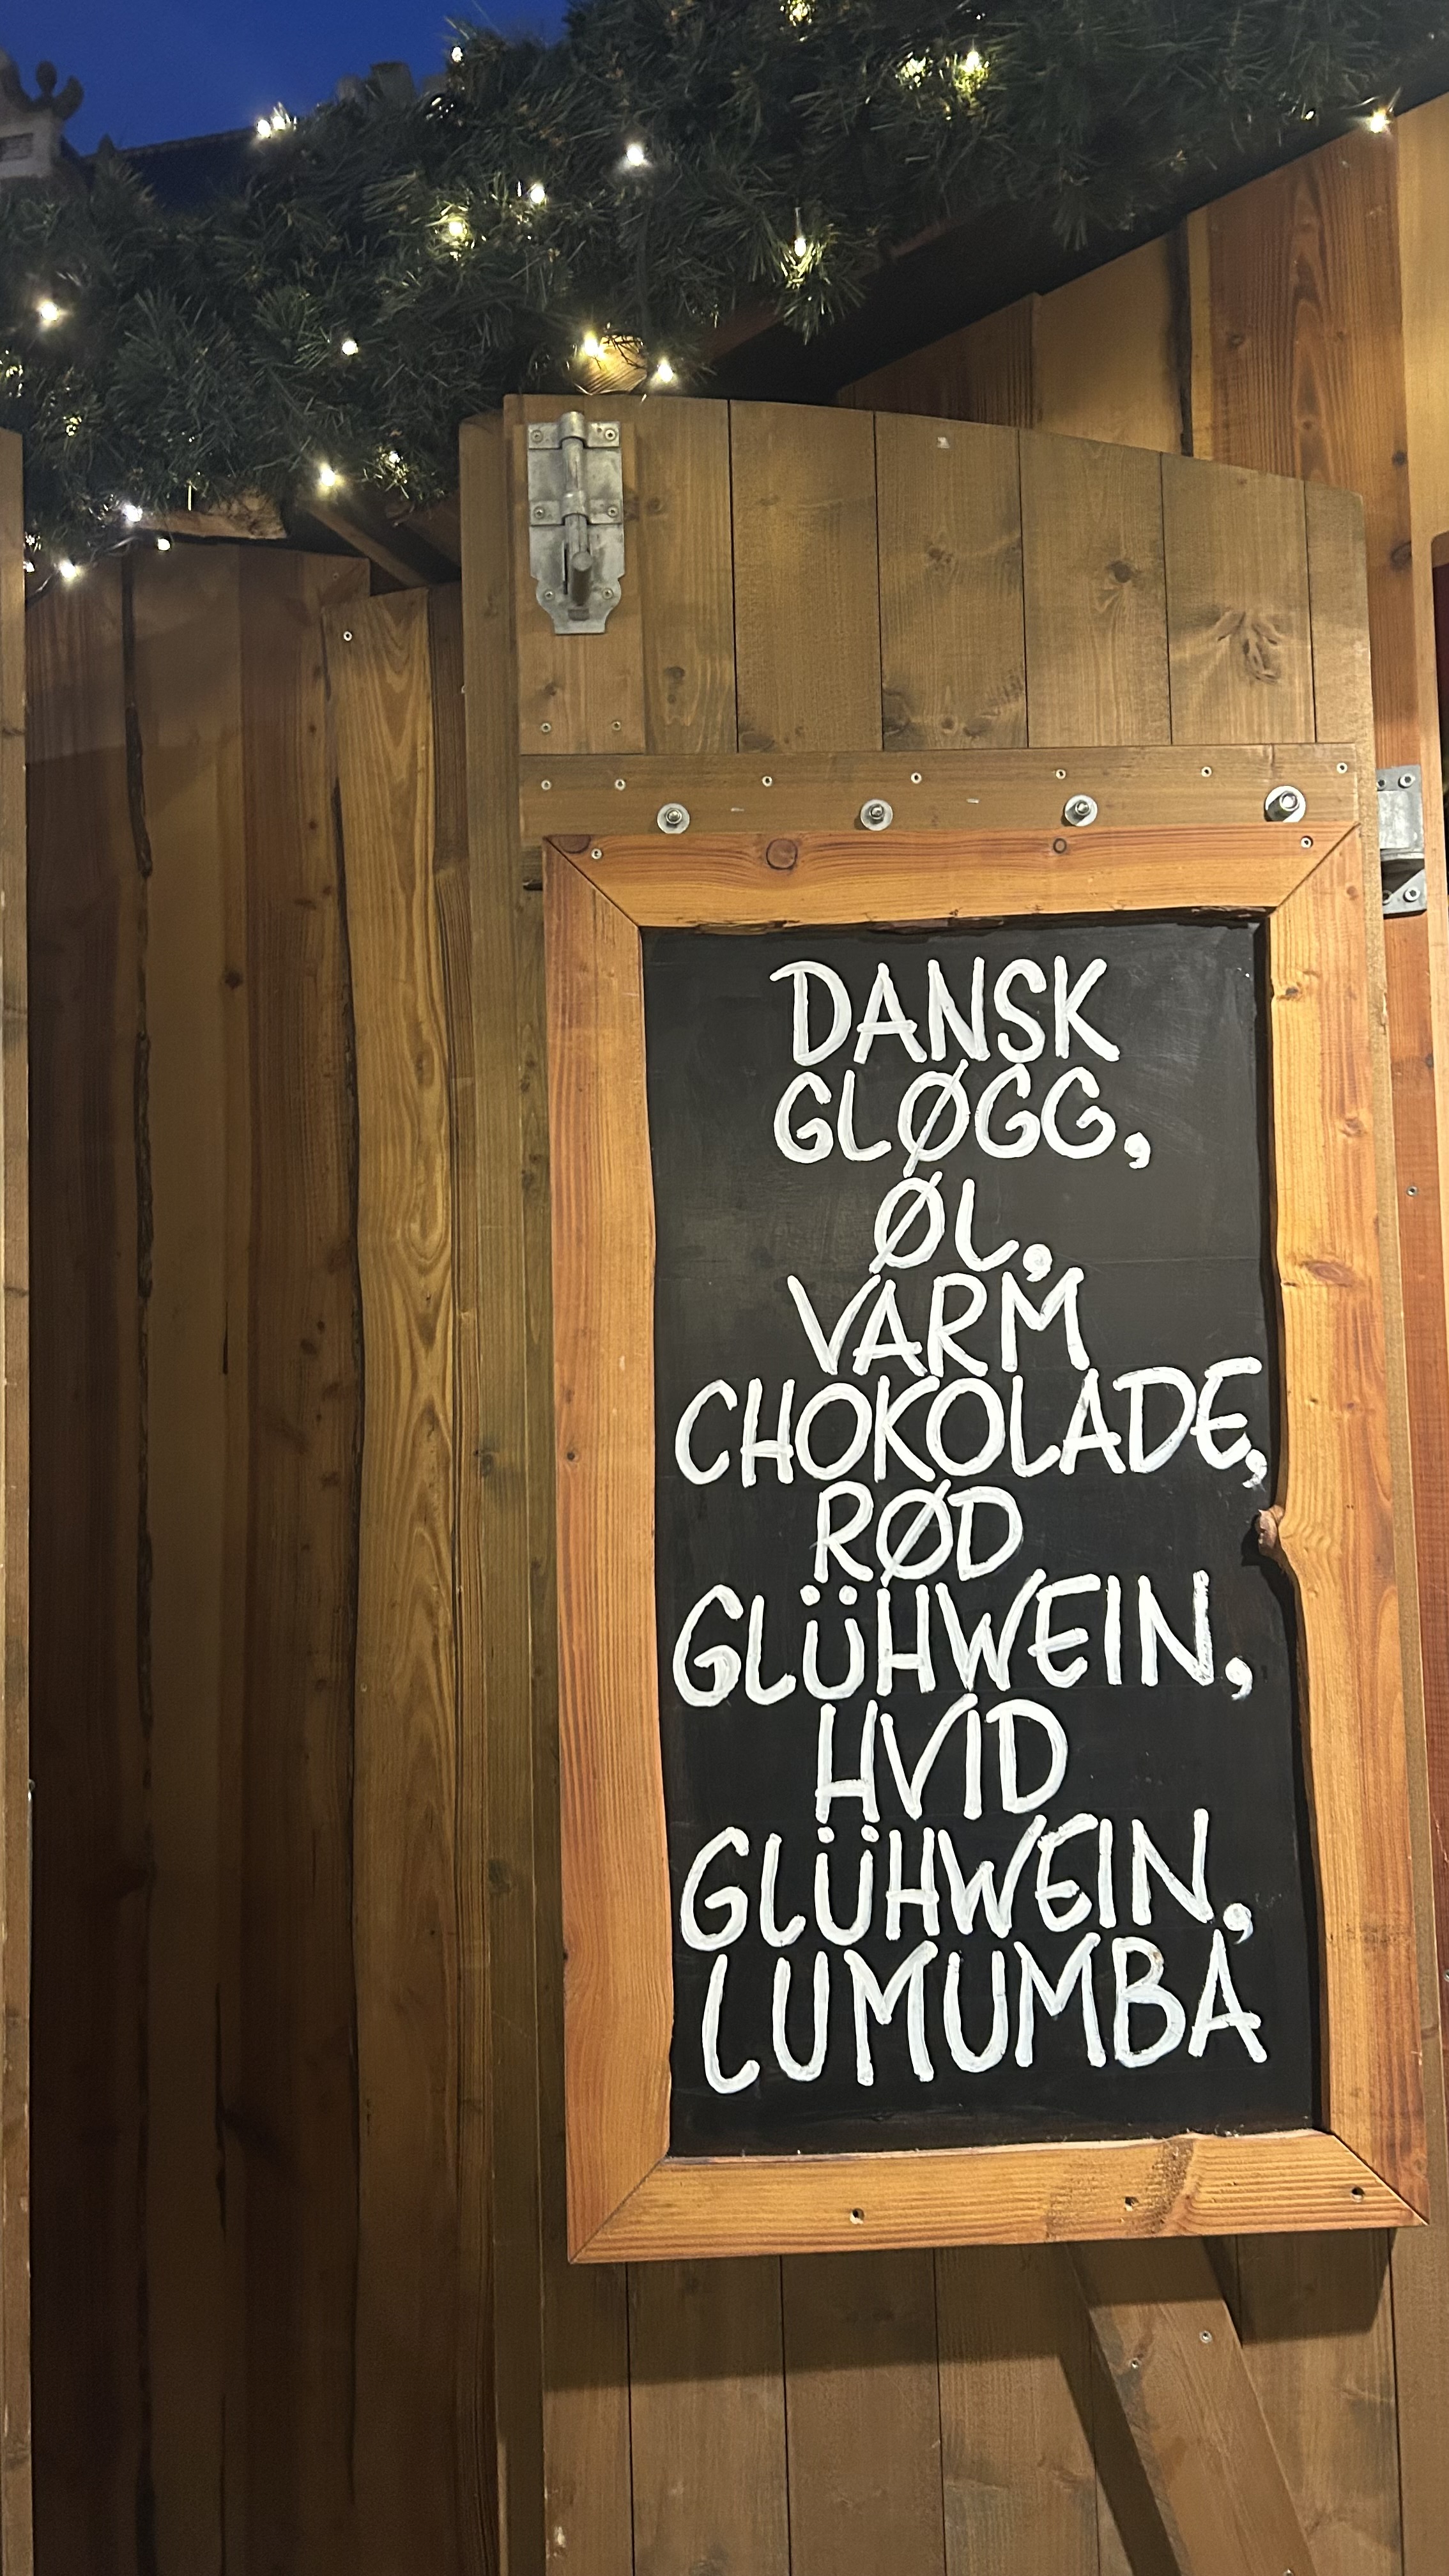 DANSK
GLØGG,
ØL,
VARM
CHOKOLADE,
RØD
GLÜHWEIN,
HVID
GLÜHWEIN,
LUMUMBA